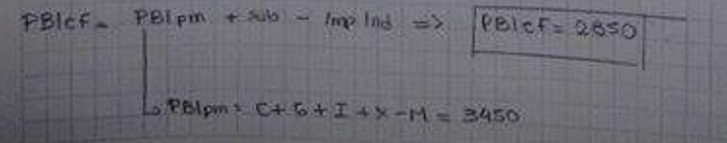 PBIcf = PBIpm + sub - Imp Ind => PBIcf = 2850
PBIpm = C + G + I + X - M = 3450